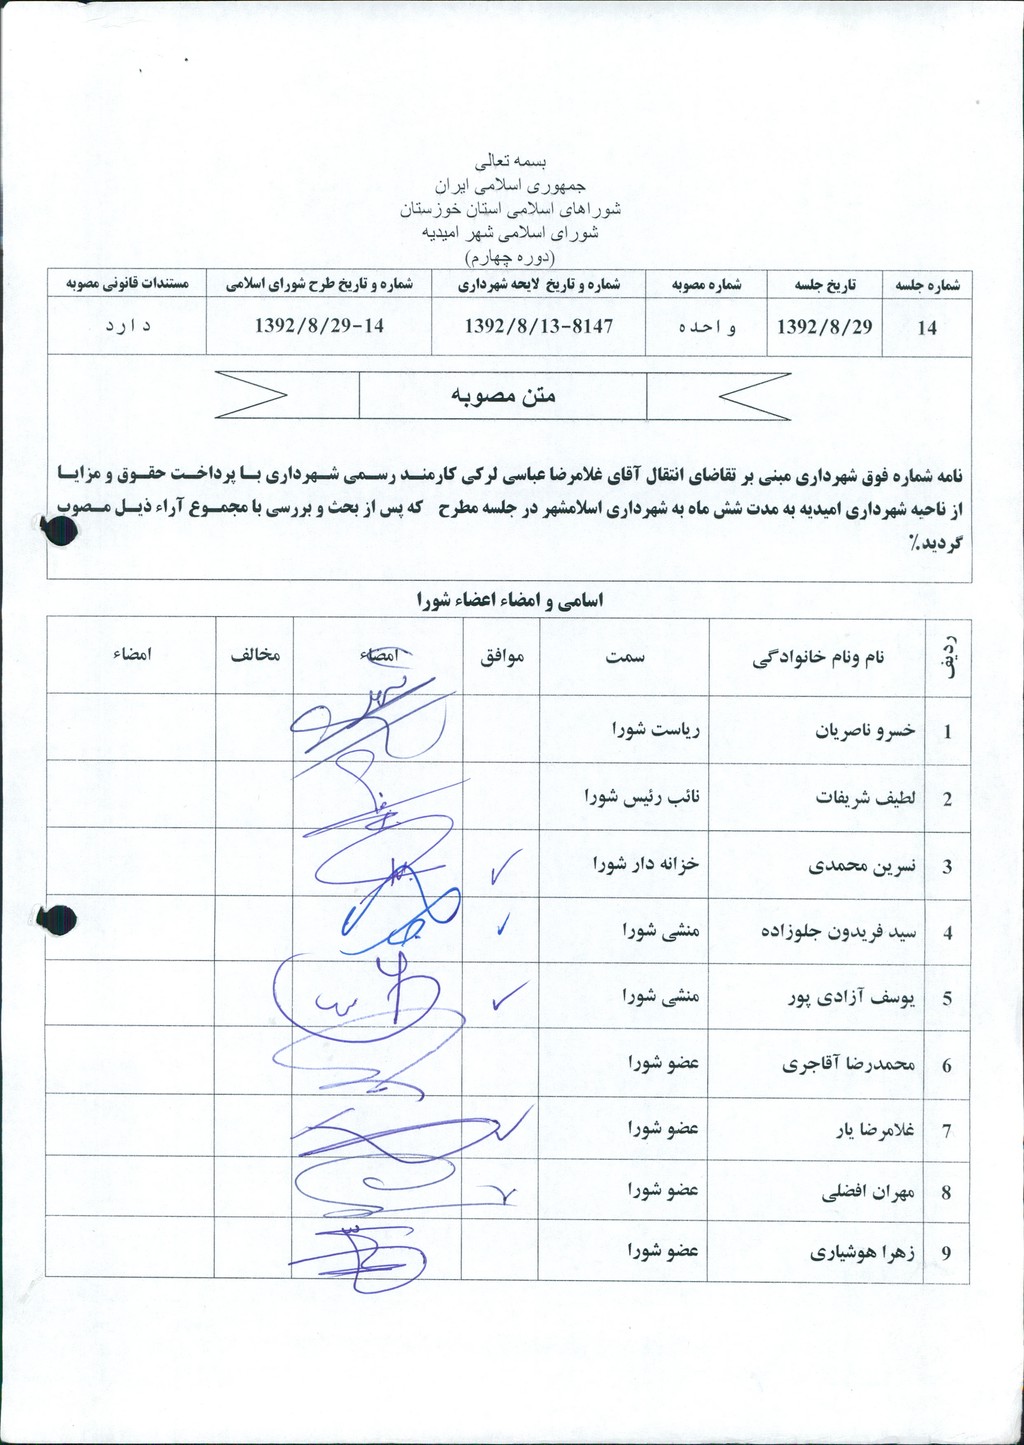 بسمه تعالی
جمهوری اسلامی ایران
شوراهای اسلامی استان خوزستان
شورای اسلامی شهر امیدیه
(دوره چهارم)
شماره جلسه تاریخ جلسه شماره مصوبه شماره و تاریخ لایحه شهرداری شماره و تاریخ طرح شورای اسلامی مستندات قانونی مصوبه
14 1392/8/29 واحده 1392/8/13-8147 1392/8/29-14 دارد
متن مصوبه
نامه شماره فوق شهرداری مبنی بر تقاضای انتقال آقای غلامرضا عباسی لرکی کارمند رسمی شهرداری با پرداخت حقوق و مزایا
از ناحیه شهرداری امیدیه به مدت شش ماه به شهرداری اسلامشهر در جلسه مطرح که پس از بحث و بررسی با مجموع آراء ذیل مصوب
گردید.٪
اسامی و امضاء اعضاء شورا
ردیف نام ونام خانوادگی سمت موافق امضاء مخالف امضاء
1 خسرو ناصریان ریاست شورا
2 لطیف شریفات نائب رئیس شورا
3 نسرین محمدی خزانه دار شورا ✓
4 سید فریدون جلوزاده منشی شورا ✓
5 یوسف آزادی پور منشی شورا ✓
6 محمدرضا آقاجری عضو شورا
7 غلامرضا یار عضو شورا ✓
8 مهران افضلی عضو شورا ✓
9 زهرا هوشیاری عضو شورا